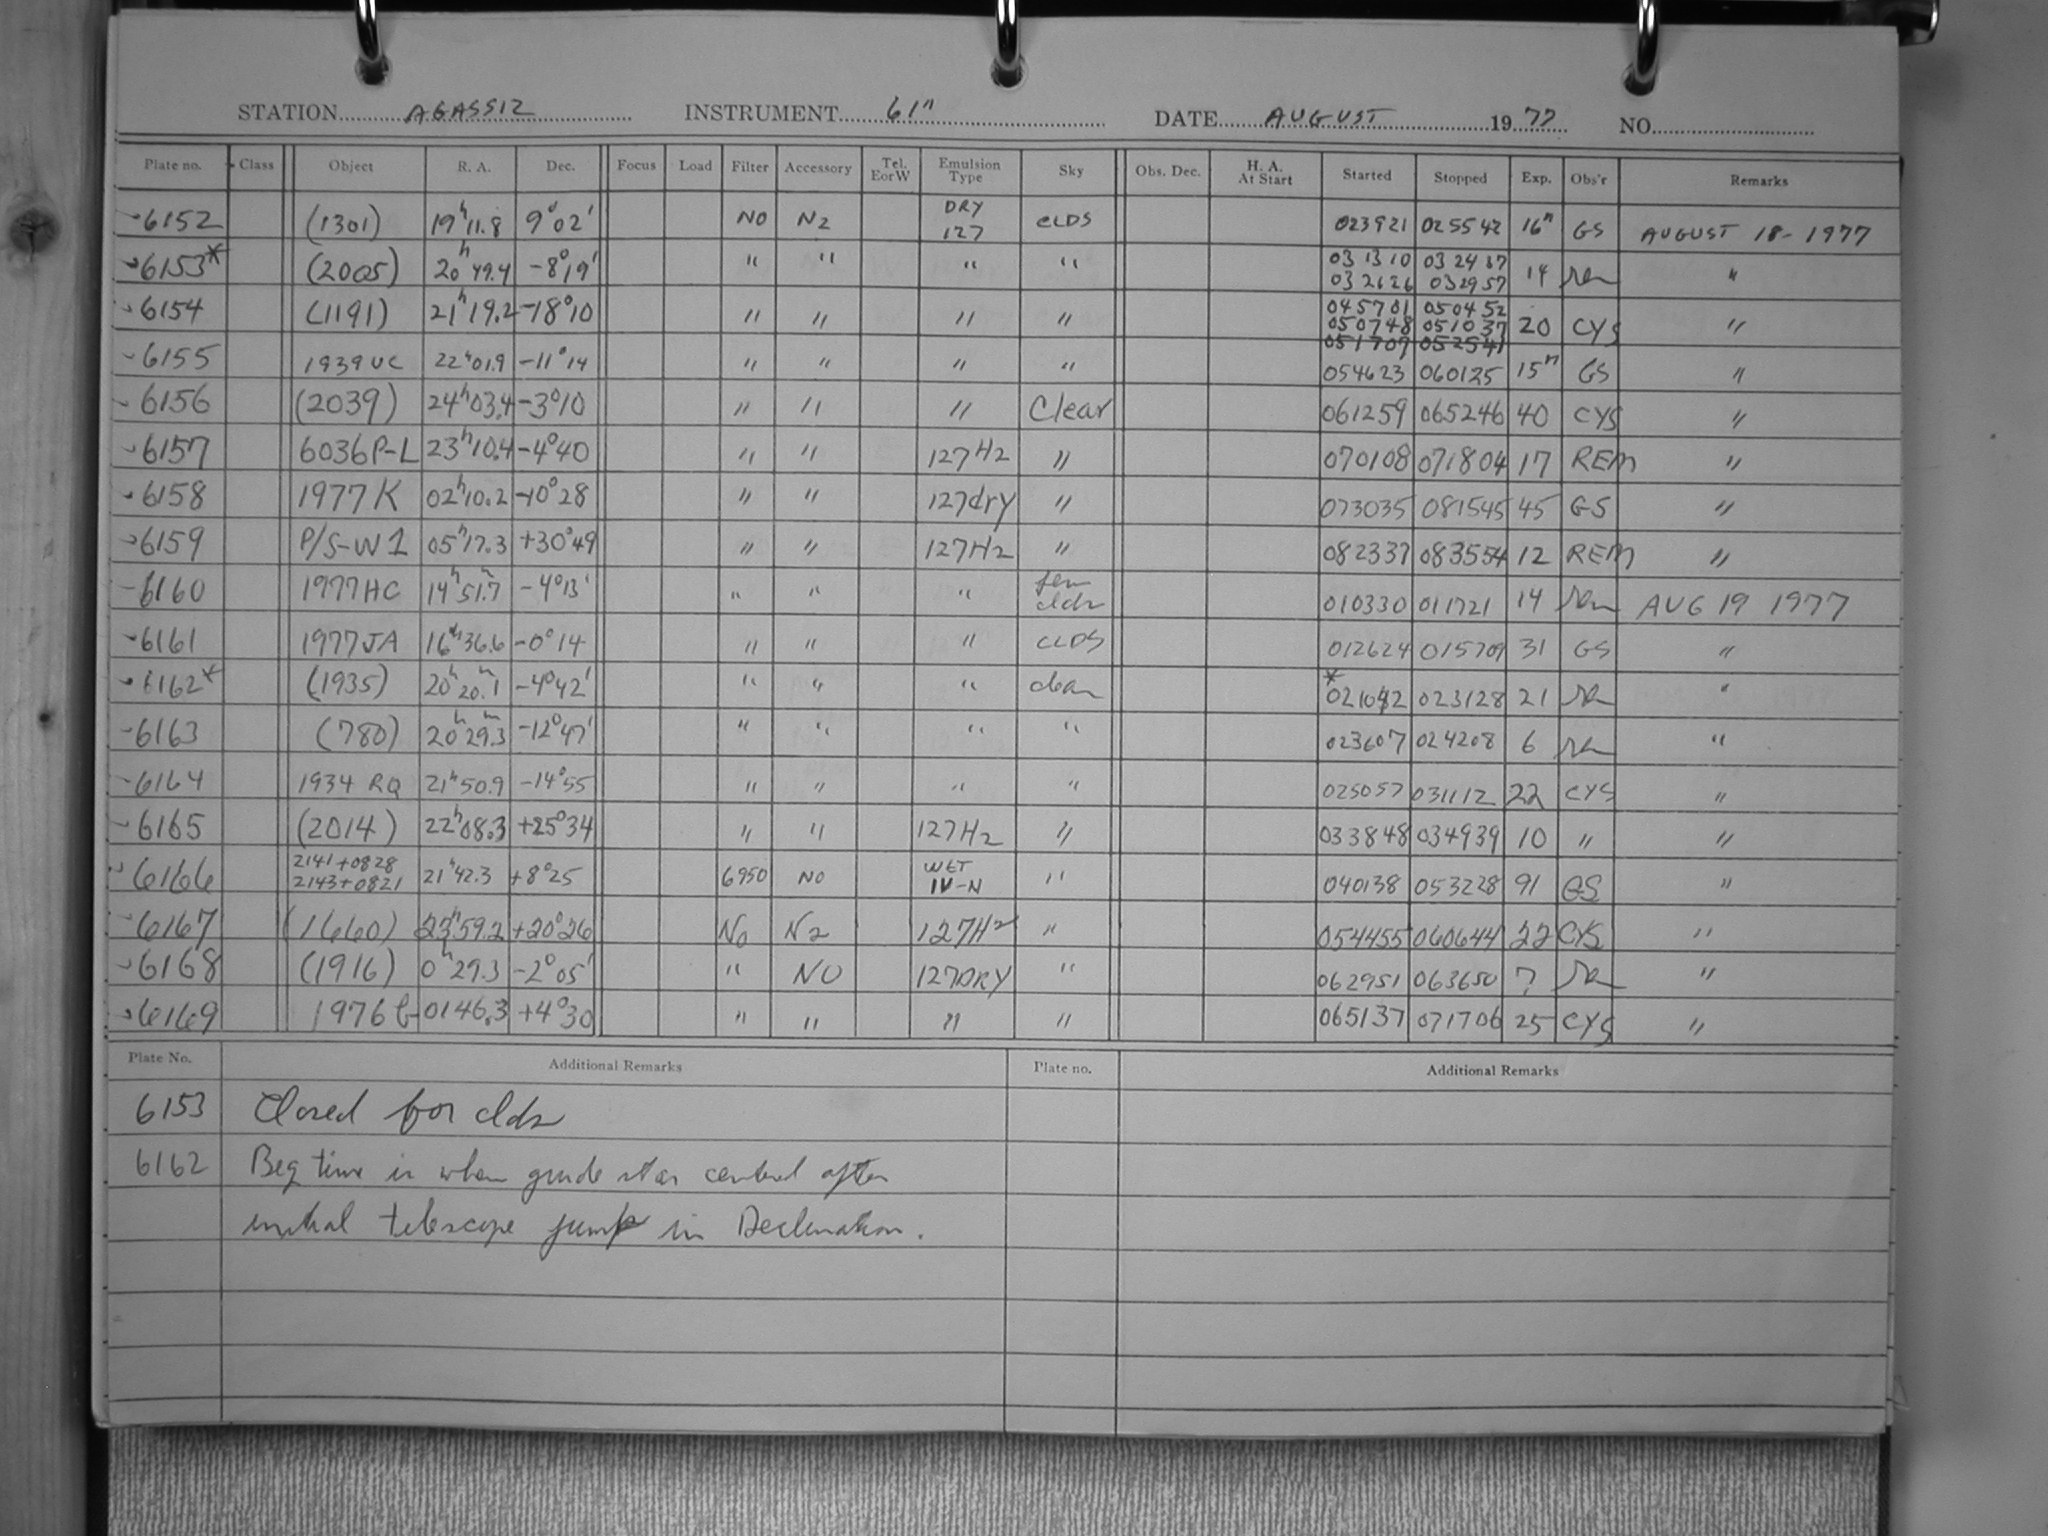 STATION AGASSIZ INSTRUMENT 61" DATE AUGUST 1977 NO.
Plate no. Class Object R. A. Dec. Focus Load Filter Accessory Tel. EorW Emulsion Type Sky Obs. Dec. H. A. At Start Started Stopped Exp. Obs'r Remarks
6152 (1301) 19h11.8 9°02' NO N2 DRY 127 CLDS 023921 025542 16m GS AUGUST 18-1977
6153* (2005) 20h49.4 -8°19' " " " " 031310 032437 14 "
032626 032957
6154 (1191) 21h19.2 -18°10 " " " " 045701 050452 20 CYS "
050748 051037
051709 052541
6155 1939 UC 22h01.9 -11°14 " " " " 054623 060125 15m GS "
6156 (2039) 24h03.4 -3°10 " " " Clear 061259 065246 40 CYS "
6157 6036P-L 23h10.4 -4°40 " " 127H2 " 070108 071804 17 REM "
6158 1977K 02h10.2 -10°28 " " 127dry " 073035 081545 45 GS "
6159 P/S-W1 05h17.3 +30°49 " " 127H2 " 082337 083554 12 REM "
6160 1977HC 14h51.7m -4°13' " " " few clds 010330 011721 14 AUG 19 1977
6161 1977JA 16h36.6 -0°14 " " " CLDS 012624 015709 31 GS "
6162* (1935) 20h20.1m -4°42' " " " clear *021042 023128 21 "
6163 (780) 20h29.3m -12°47' " " " " 023607 024208 6 "
6164 1934 RQ 21h50.9 -14°55 " " " " 025057 031112 22 CYS "
6165 (2014) 22h08.3 +25°34 " " 127H2 " 033848 034939 10 " "
6166 2141+0828 2143+0821 21h42.3 +8°25 6950 NO WET IV-N " 040138 053228 91 GS "
6167 (1660) 23h59.2 +20°26 No N2 127H2 " 054455 060644 22 CYS "
6168 (1916) 0h29.3 -2°05' " NO 127DRY " 062951 063650 7 "
6169 1976 0146.3 +4°30 " " " " 065137 071706 25 CYS "
Plate No. Additional Remarks Plate no. Additional Remarks
6153 Closed for clds
6162 Beg time is when guide star centered after
initial telescope jump in Declination.